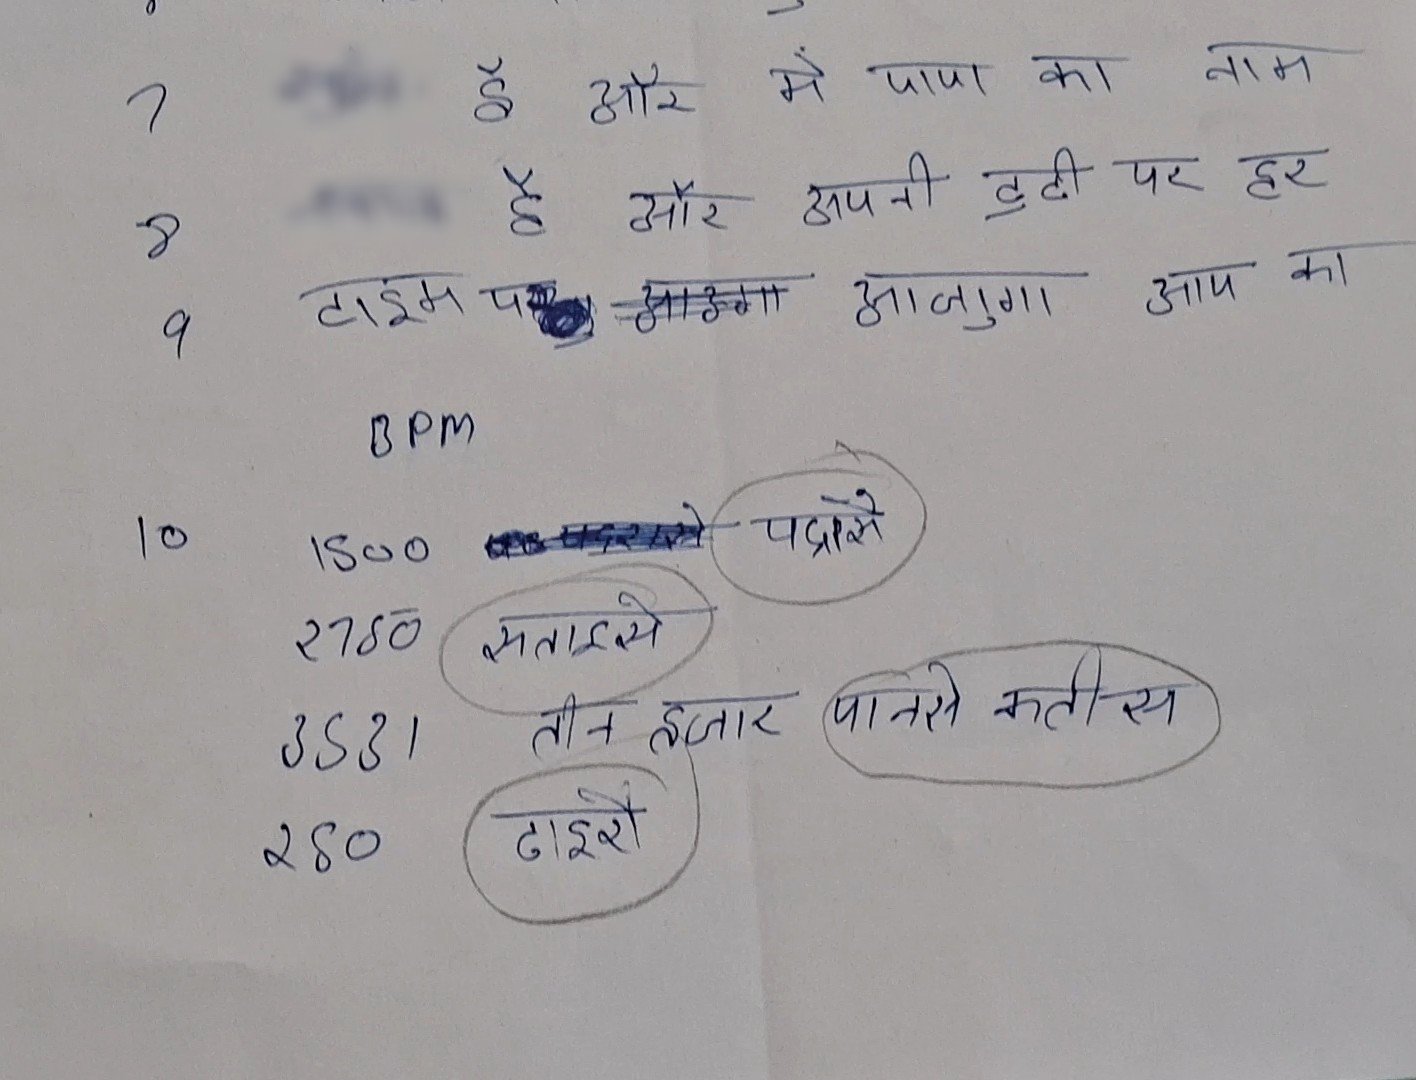 7 हैं और में पापा का नाम
8 हैं और अपनी डुटी पर हर
9 टाइम पर आजुगा आप का
BPM
10 1500 पद्रासे
2750 सताइसे
3531 तीन हजार पानसे कतीस
250 ढाइसे